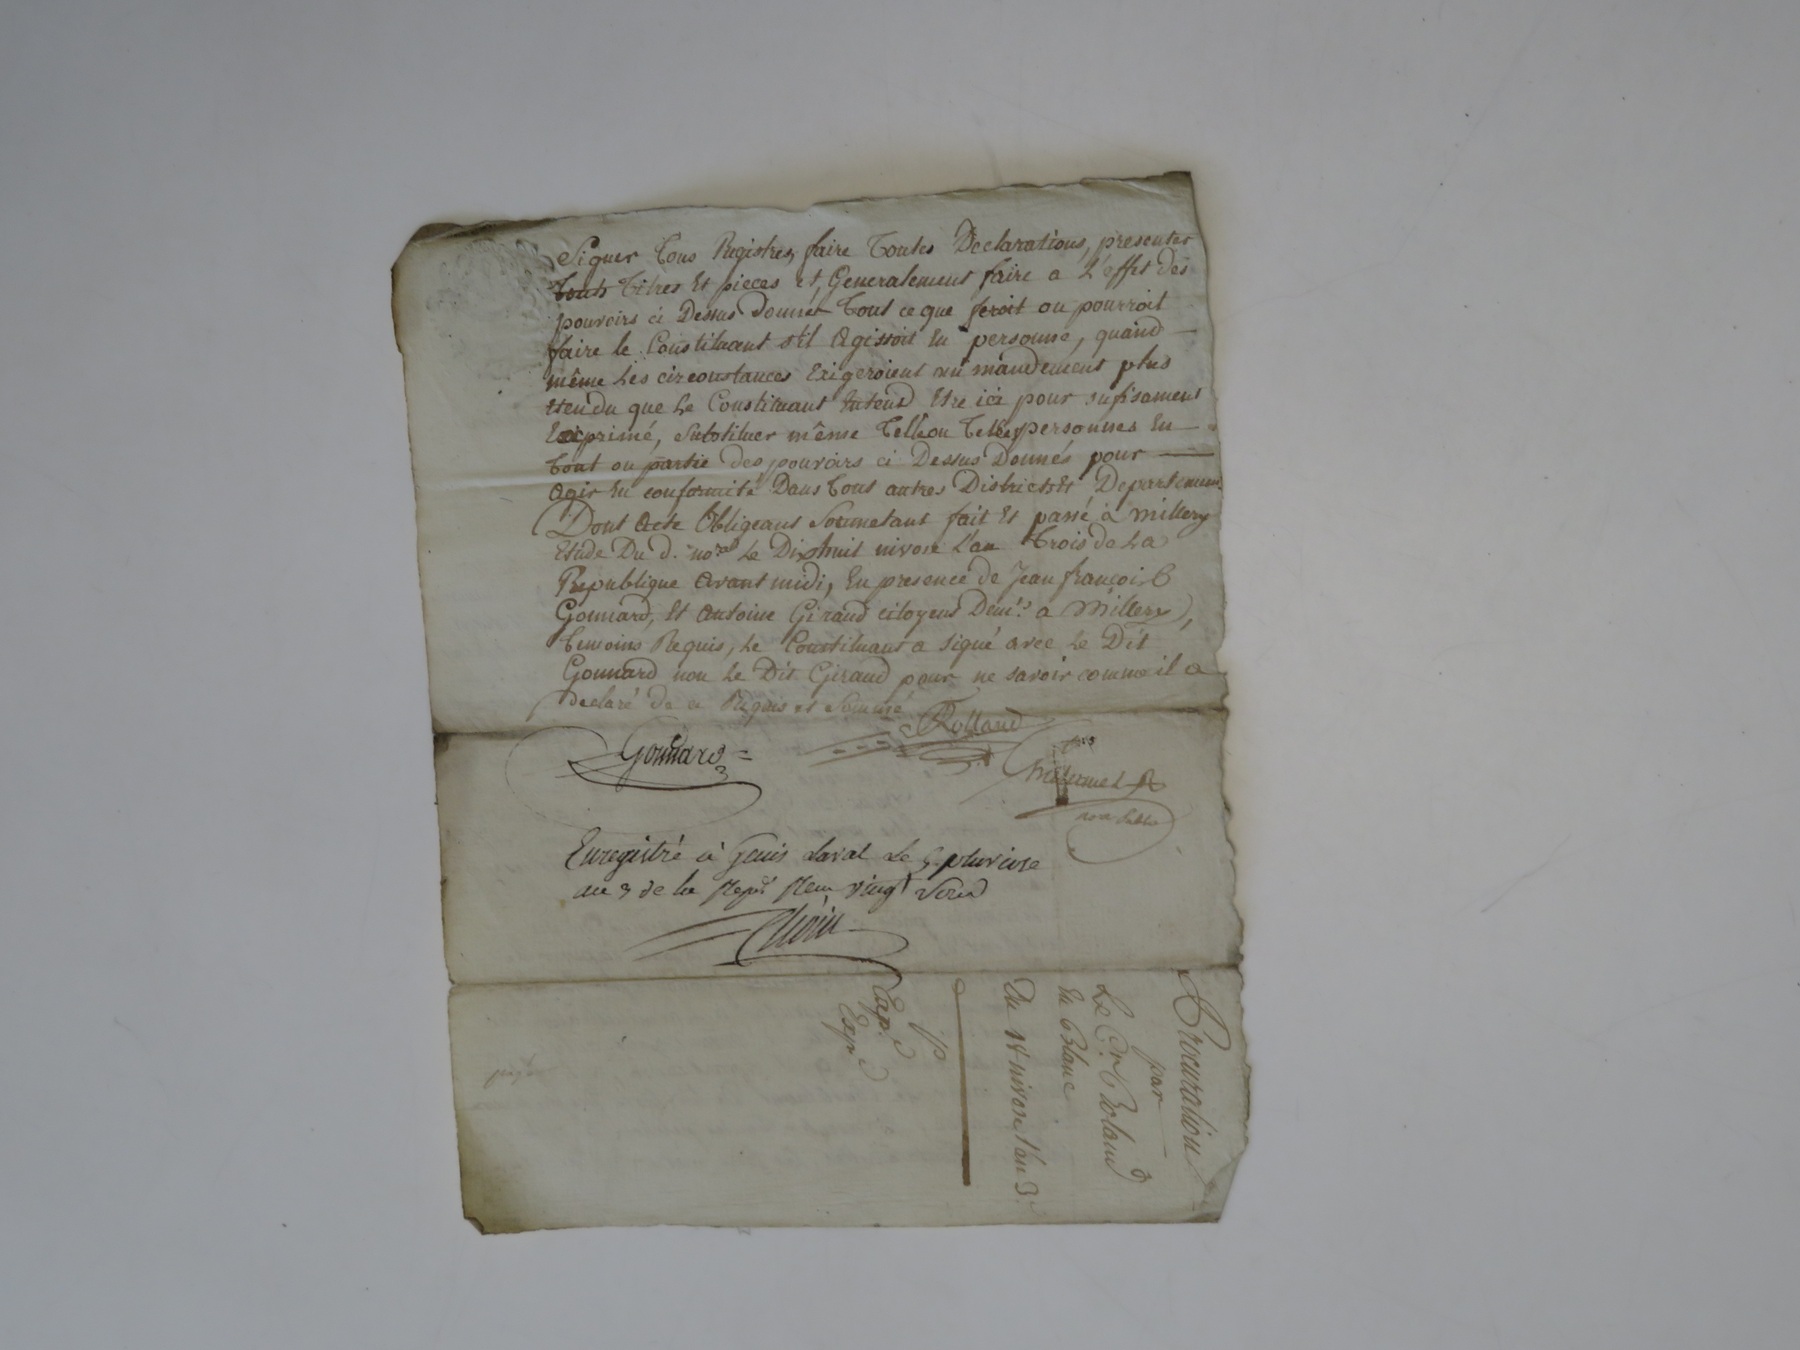 Signer tous Registres, faire toutes Declarations, presenter
tous titres Et pieces et, Generalement faire a L'effet des
pouvoirs ci Dessus Donnés tout ce que feroit ou pourroit
faire le Constituant s'il Agissoit En personne, quand
même Les circonstances Exigeroient un mandement plus
Etendu que Le Constituant Entend Etre ici pour sufisament
Exprimé, substituer même telle ou telles personnes En
tout ou partie des pouvoirs ci Dessus Donnés pour
Agir En conformité Dans tous autres Districts Et Departemens
Dont Acte Obligeant Soumetant fait Et passé à Millery
Etude Du d. no.re Le Dixhuit nivose L'an trois de La
Republique Avant midi, En presence de Jean françois
Gonnard, Et Antoine Giraud citoyens Dem.t a Millery,
temoins Requis, Le Constituant a signé avec Le Dit
Gonnard non Le Dit Giraud pour ne savoir comme il a
declaré de ce Requis et Sommé
Rolland
Gonnard
Enregistré à Genis Laval Le 5 pluviose
an 3 de la Rep.e Reçu vingt Sous
Procuration
par
Le C.n Roland
En Blanc
Du 18 nivose l'an 3.e
Exp.é
Exp.é